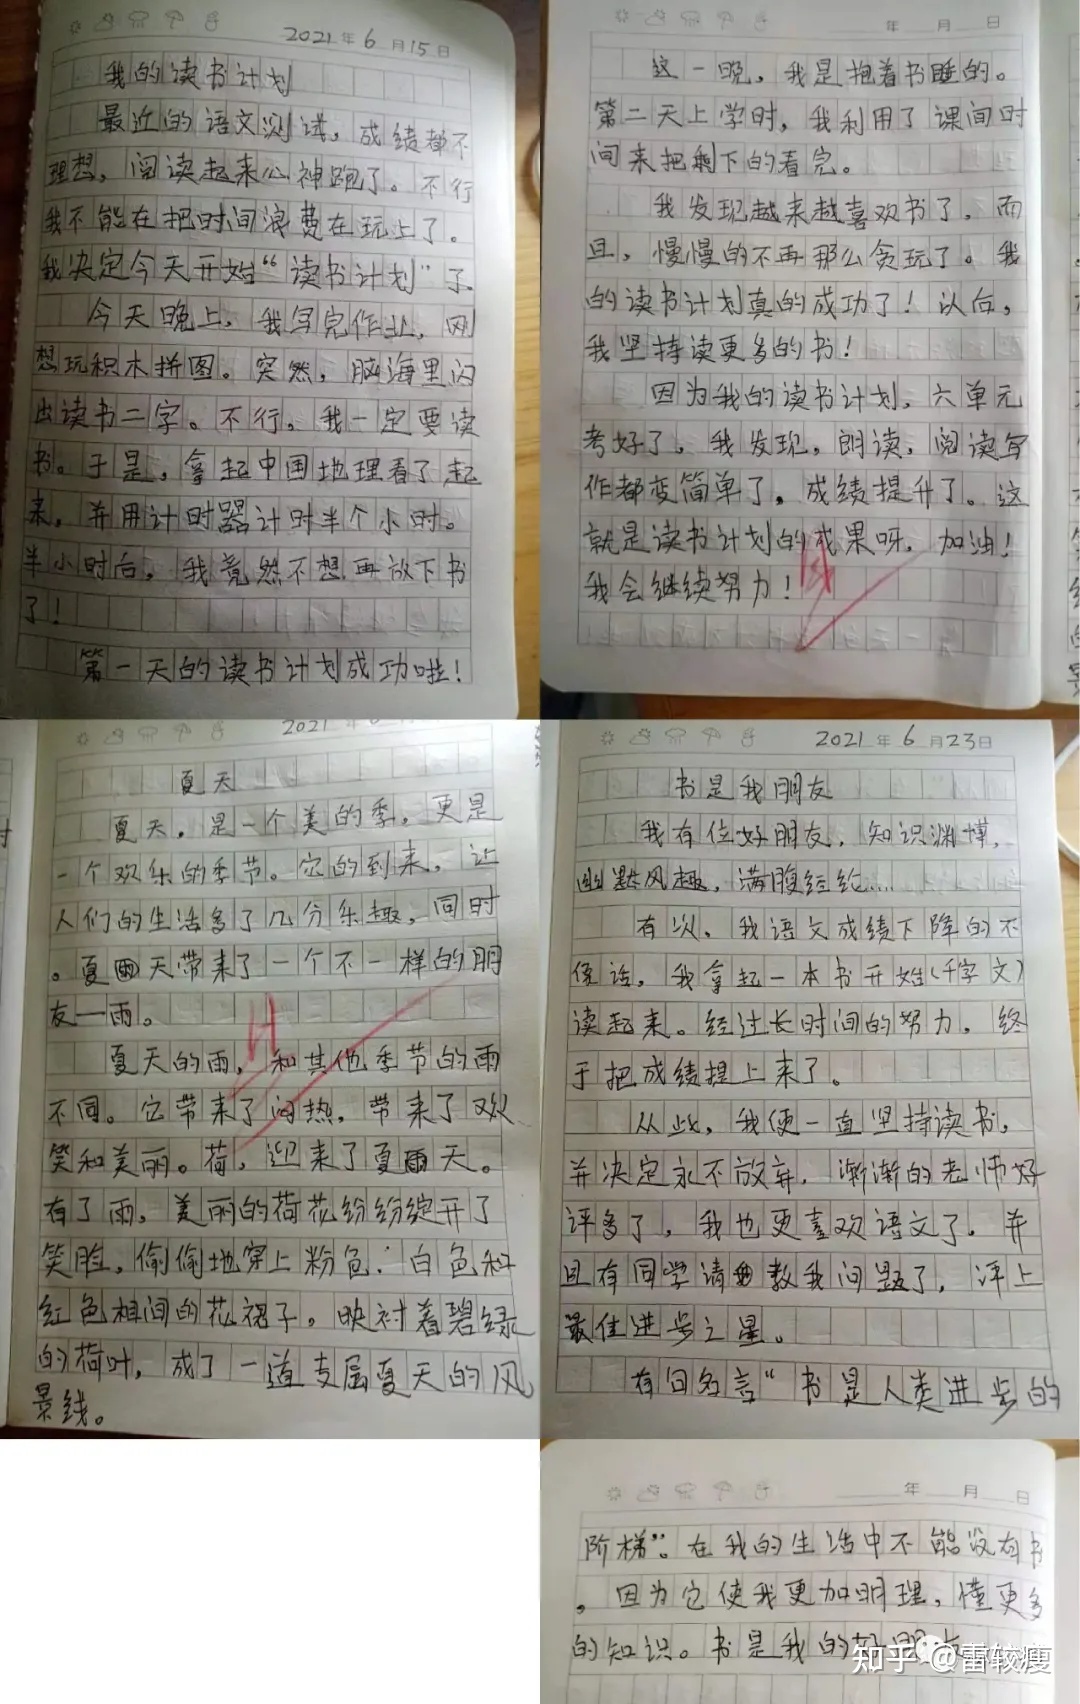 2021年6月15日
我的读书计划
最近的语文测试，成绩都不
理想，阅读起来心神跑了。不行
我不能在把时间浪费在玩上了。
我决定今天开始“读书计划”了
今天晚上，我写完作业，刚
想玩积木拼图。突然，脑海里闪
出读书二字。不行，我一定要读
书。于是，拿起中国地理看了起
来，并用计时器计时半个小时。
半小时后，我竟然不想再放下书
了！
第一天的读书计划成功啦！
年 月 日
这一晚，我是抱着书睡的。
第二天上学时，我利用了课间时
间来把剩下的看完。
我发现越来越喜欢书了，而
且，慢慢的不再那么贪玩了。我
的读书计划真的成功了！以后，
我坚持读更多的书！
因为我的读书计划，六单元
考好了。我发现，朗读，阅读写
作都变简单了，成绩提升了。这
就是读书计划的成果呀，加油！
我会继续努力！
2021年6
夏天
夏天，是一个美的季，更是
一个欢乐的季节。它的到来，让
人们的生活多了几分乐趣，同时
。夏天带来了一个不一样的朋
友一雨。
夏天的雨，和其他季节的雨
不同。它带来了闷热，带来了欢
笑和美丽。荷，迎来了夏天。
有了雨，美丽的荷花纷纷绽开了
笑脸，偷偷地穿上粉色：白色和
红色相间的花裙子，映衬着碧绿
的荷叶，成了一道支属夏天的风
景线。
2021年6月23日
书是我朋友
我有位好朋友，知识渊博，
幽默风趣，满腹经纶……
有次，我语文成绩下降的不
像话，我拿起一本书开始(千字文)
读起来。经过长时间的努力，终
于把成绩提上来了。
从此，我便一直坚持读书，
并决定永不放弃，渐渐的老师好
评多了，我也更喜欢语文了。并
且有同学请教我问题了，评上
最佳进步之星。
有句名言“书是人类进步的
年 月 日
阶梯”。在我的生活中不能没有书
，因为它使我更加明理，懂更多
的知识。书是我的好朋
知乎 @雷较瘦